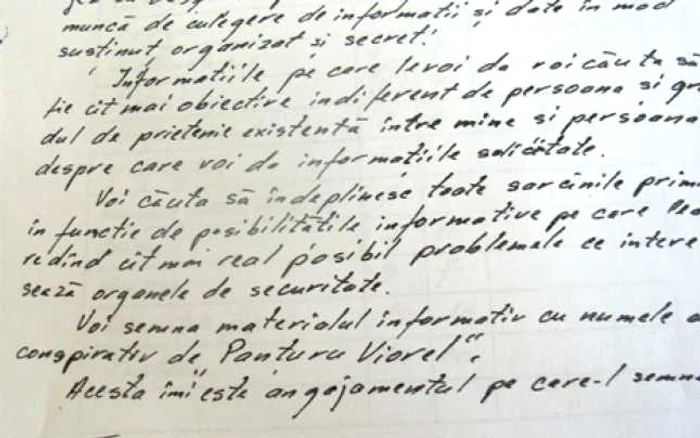 muncă de culegere de informatii și date în mod
sustinut organizat si secret.
Informatiile pe care levoi da voi căuta să
fie cit mai obiective indiferent de persoana si gra
dul de prietenie existentă între mine si persoana
despre care voi da informatiile solicitate.
Voi căuta să îndeplinesc toate sarcinile prim
în functie de posibilitătile informative pe care leam
redînd cît mai real posibil problemele ce intere
sează organele de securitate.
Voi semna materialul informativ cu numele
conspirativ de "Panturu Viorel".
Acesta îmi este angajamentul pe care-l semn